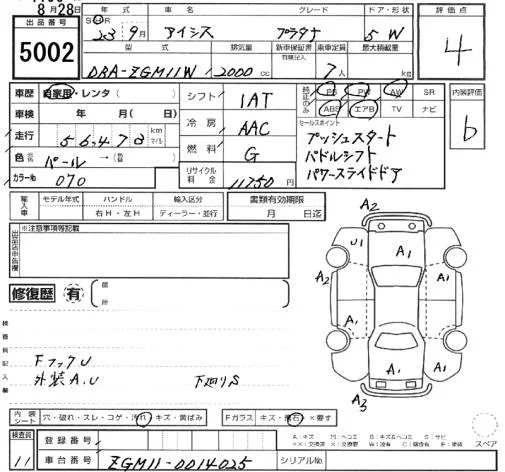 8月28日
出品番号
5002
年式 車名 グレード ドア・形状
23年9月 アイシス プラタナ 5 W
型式 排気量 新車保証書 乗車定員 最大積載量
有無記入
DBA-ZGM11W 2000cc 7人 kg
評価点
4
車歴 自家用・レンタ( )
車検 年 月( 日)
走行 56,478 km マイル
色 パール → (替)
カラーNo 070
シフト 1AT
冷房 AAC
燃料 G
リサイクル料金 11750円
純正のみ PS PW AW SR
ABS エアB TV ナビ
セールスポイント
プッシュスタート
パドルシフト
パワースライドドア
内装評価
b
輸入車 モデル年式 ハンドル 輸入区分
右H・左H ディーラー・並行
書類有効期限
月 日迄
※注意事項等記載
修復歴 有
箇所
検査員記入欄
FフックU
外装A.U 下廻りS
A2
U1 A1
A2 A1
A1 A1
A1
A3
内装シート 穴・破れ・スレ・コゲ・汚れ・キズ・黄ばみ Fガラス キズ・飛石・×要す
スペア
検査員
11
登録番号
車台番号 ZGM11-0014025 シリアルNo.